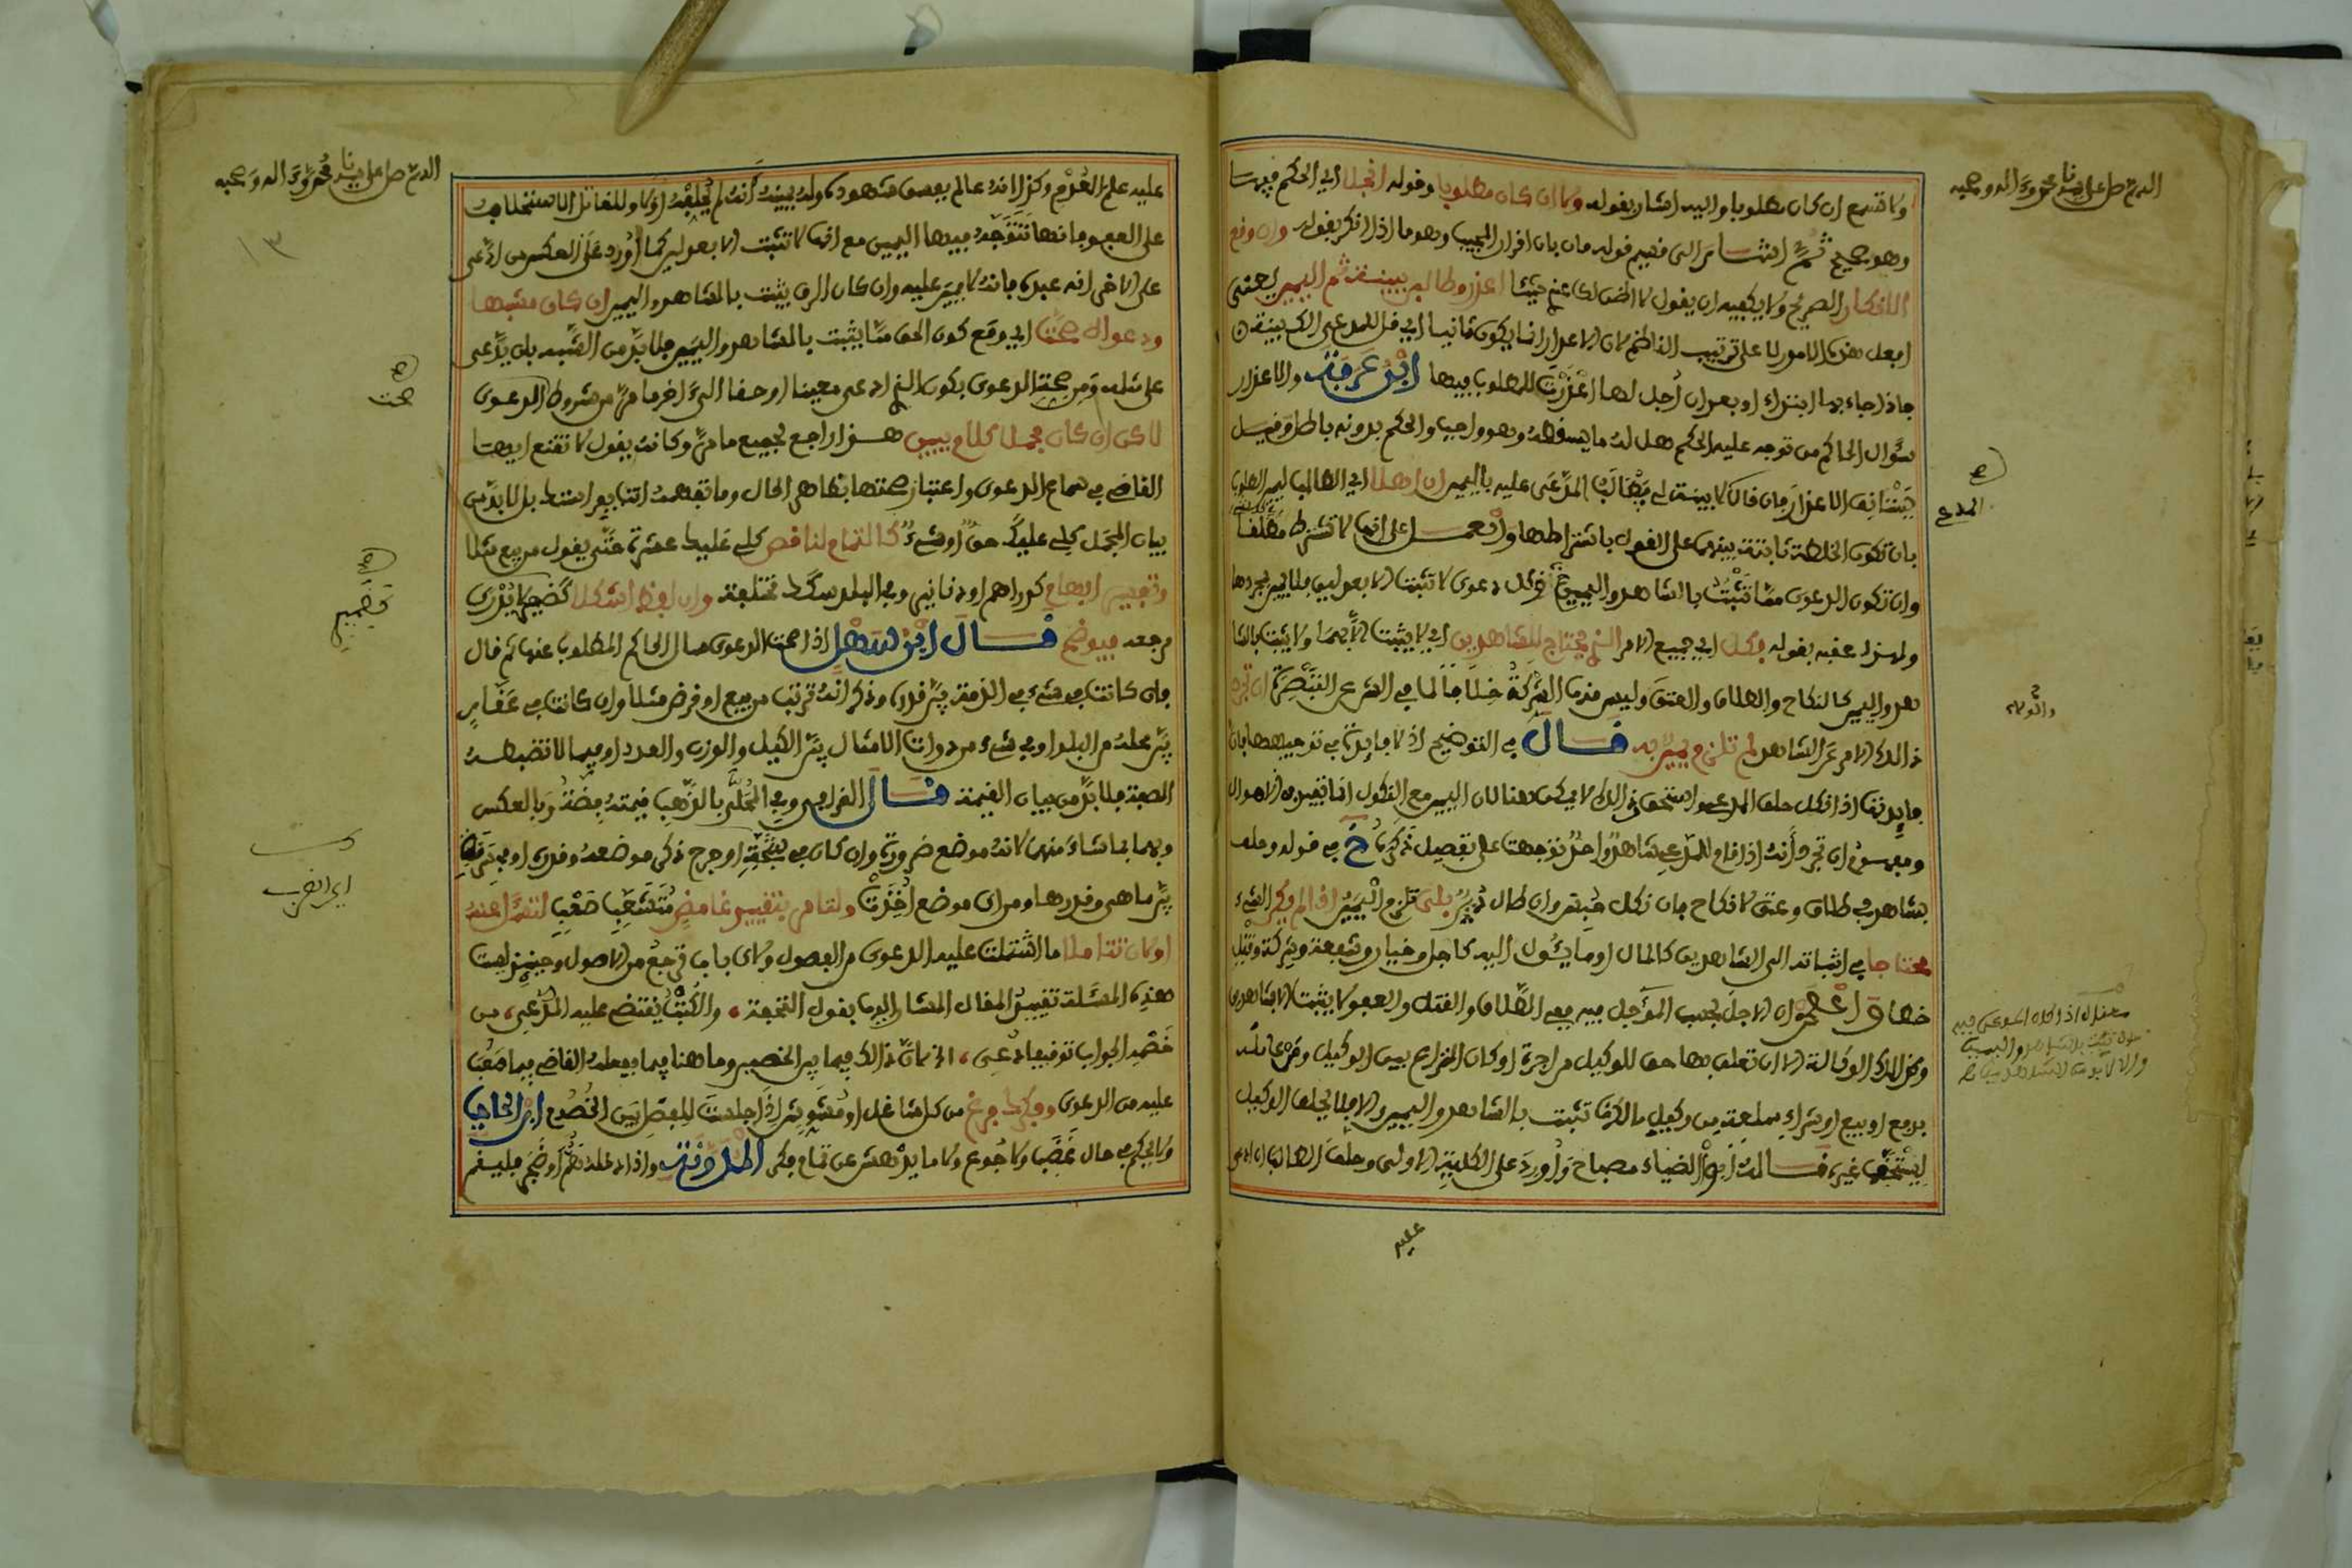 اللهم صل على سيدنا محمد وءاله وصحبه
ولا تسمع ان كان مطلوبا واليه اشار بقوله ولا ان كان مطلوبا وقوله انجلا اي الحكم فيرسا
وهو صحيح ثم اشار الى قسيم قوله فان بان اقرار المجيب وهو ما اذا انكر بقوله وان وقع
الانكار الصريح ولا يكفيه ان يقول لا اظن لك عندي شيئا اعذر وطالبه ببينة ثم اليمين يعني
افعل هذه الامور لا على ترتيب الناظم لان الاعذار انما يكون ثانيا اي قل للمدعي الك بينة
فاذا جاء بها ابتداء او بعد ان اجل لها اعذرت للمطلوب فيها ابن عرفة والاعذار
سؤال الحاكم من توجه عليه الحكم هل له ما يسقطه وهو واجب والحكم بدونه باطل وقيل
يستانف الاعذار فان قال لا بينة لي يطالب المدعى عليه باليمين ان اهلا اي الطالب ليمين المطلوب
بان تكون الخلطة ثابتة بينهما على القول باشتراطها والعمل على انها لا تشترط مطلقا
وان تكون الدعوى مما تثبت بالشاهد واليمين فكل دعوى لا تثبت الا بعدلين فلا يمين بمجردها
ولهذا عقبه بقوله فكل اي جميع الامر الذي يحتاج للشاهدين اي لا يثبت الا بهما ولا يثبت بالشا
هد واليمين كالنكاح والطلاق والعتق وليس منها الشركة خلافا لما في الشرح عن التبصرة ان تجرد
ذالك الامر عن الشاهد لم تلزم يمين به قال في التوضيح اذ لا فايدة في توجيهها فان
فايدتها اذا نكل حلف المدعي واستحق ذالك لا يمكن هنا لان اليمين مع النكول انما تفيد في الاموال
ومفهوم ان تجرد انه اذا قام للمدعي شاهد واحد توجهت على تفصيل ذكره خ في قوله وحلف
بشاهد في طلاق وعتق لا نكاح فان نكل حبس وان طال دين بلى تلزم اليمين اذا لم يكن الشيء
محتاجا في اثباته الى الشاهدين كالمال او ما يئول اليه كاجل وخيار وشفعة وشركة وقتل
خطا واعلم ان الاجل بحسب المؤجل فيه ففي الطلاق والقتل والعفو لا يثبت الا بشاهدين
وكذلك الوكالة الا ان تعلق بها حق للوكيل من اجرة او كان النزاع بين الوكيل ومن عامله
بدفع او بيع او شراء سلعة من وكيل مالكها تثبت بالشاهد واليمين والا فلا يحلف الوكيل
ليستحق غيره قاله ابو الضياء مصباح واورد على الكلية الاولى وحلف الطالب ان ادعى
المدعي
والولاء
عليه
اللهم صل على سيدنا محمد وءاله وصحبه
١٣
عليه علم العدم وكذا انه عالم بفسق شهوده وله بينة انه لم يحلفه اولا وللقاتل الاستحلاف
على العفو فانها تتوجه فيها اليمين مع انها لا تثبت الا بعدلين كما اورد على العكس من ادعى
على الاخر انه عبده فانه لا يمين عليه وان كان الرق يثبت بالشاهد واليمين ان كان مشبها
ودعواه صحت اي ومع كون الحق مما يثبت بالشاهد واليمين فلا بد من الشبه بان يدعي
على مثله ومن صحة الدعوى بكون الذي ادعى معينا او حقا الى ءاخر ما مر من شروط الدعوى
لاكن ان كان مجملا كلام يبين هذا راجع لجميع ما مر وكانه يقول لا تقنع ايها
القاضي في سماع الدعوى واعتبار صحتها بظاهر الحال وما تفهمه اتباعه استند بل لا بد من
بيان المجمل كلي عليك حق او شيء كالتمام لناقص كلي عليك عشرة حتى يقول من بيع مثلا
وتفسير ابهام كدراهم او دنانير وفي البلد سكك مختلفة وان لفظ اشكلا كضمير لا يدرى
مرجعه فيوضح قال ابن سهل اذا صحت الدعوى سال الحاكم المطلوب عنها ثم قال
فان كانت في شيء في الذمة بين قدره وذكر انه ترتب من بيع او قرض مثلا وان كانت في عقار
بين محله من البلد او في شيء من ذوات الامثال بين الكيل والوزن والعدد او فيما لا تضبطه
الصفة فلا بد من بيان القيمة قال القرافي وفي المحلى بالذهب قيمته فضة وبالعكس
وبهما بما شاء منهما لانه موضع ضرورة وان كان في شجة او جرح ذكر موضعه وقدره او في سرقة
بين ما هي وقدرها ومن اي موضع اخذت ولتامر بتفسير غامض متشعب صعب لتفهما عنه
او كان تتاملا ما اشتملت عليه الدعوى من الفصول ولاي باب ترجع من الاصول وحينئذ ليست
هذه المسئلة تفسير المقال المشار اليها بقول التحفة والكتب يقتضى عليه المدعي من
خصمه الجواب توقيفا دعي اذ ذاك فيما بين الخصمين وما هنا فيما يفعله القاضي فيما صعب
عليه من الدعوى وفكرك فرغ من كل شاغل او مشوش اذا جلست للفصل بين الخصوم ابن الحاجب
ولا يحكم في حال غضب ولا جوع ولا ما يدهش عن تمام فكر المدونة واذا دخله هم او ضجر فليقم
صحت
كضمير